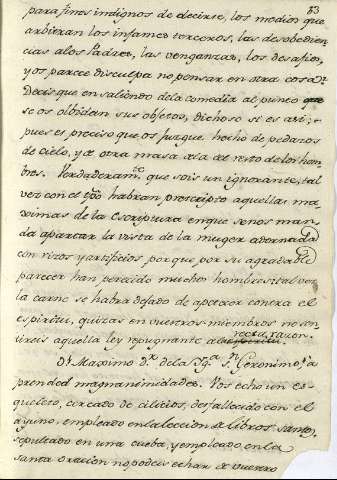 83
para fines indignos de decirse, los medios que
arbitran los infames terceros, las desobedien
cias a los Padres, las venganzas, los desafios,
y os parece disculpa no pensar en otra cosa?
Decis que en saliendo de la comedia al punto que
se os olbidan sus objetos, dichoso si es asi;
pues es preciso que os juzgue hecho de pedazos
de Cielo, y de otra masa q.e la del resto de los hom
bres. Verdaderam.te que sois un ignorante, tal
vez con el tpõ habran prescripto aquellas ma
ximas de la Escriptura en que se nos man
da apartar la vista de la muger adornada
con rizos y artificios porque por su agradable
parecer han perecido muchos hombres: tal vez
la carne se habra dejado de apetecer contra el
espiritu, quizas en vuestros miembros no sen
tireis aquella ley repugnante a la recta razon.
D.r Maximo D.r de la Yg.a S.n Geronimo, a
prended magnanimidades. Vos echo un es-
queleto, cercado de cilicios, desfallecido con el
ayuno, empleado en la leccion de libros santos,
sepultado en una cueba, y empleado en la
santa oracion no podeis echar de vuestro